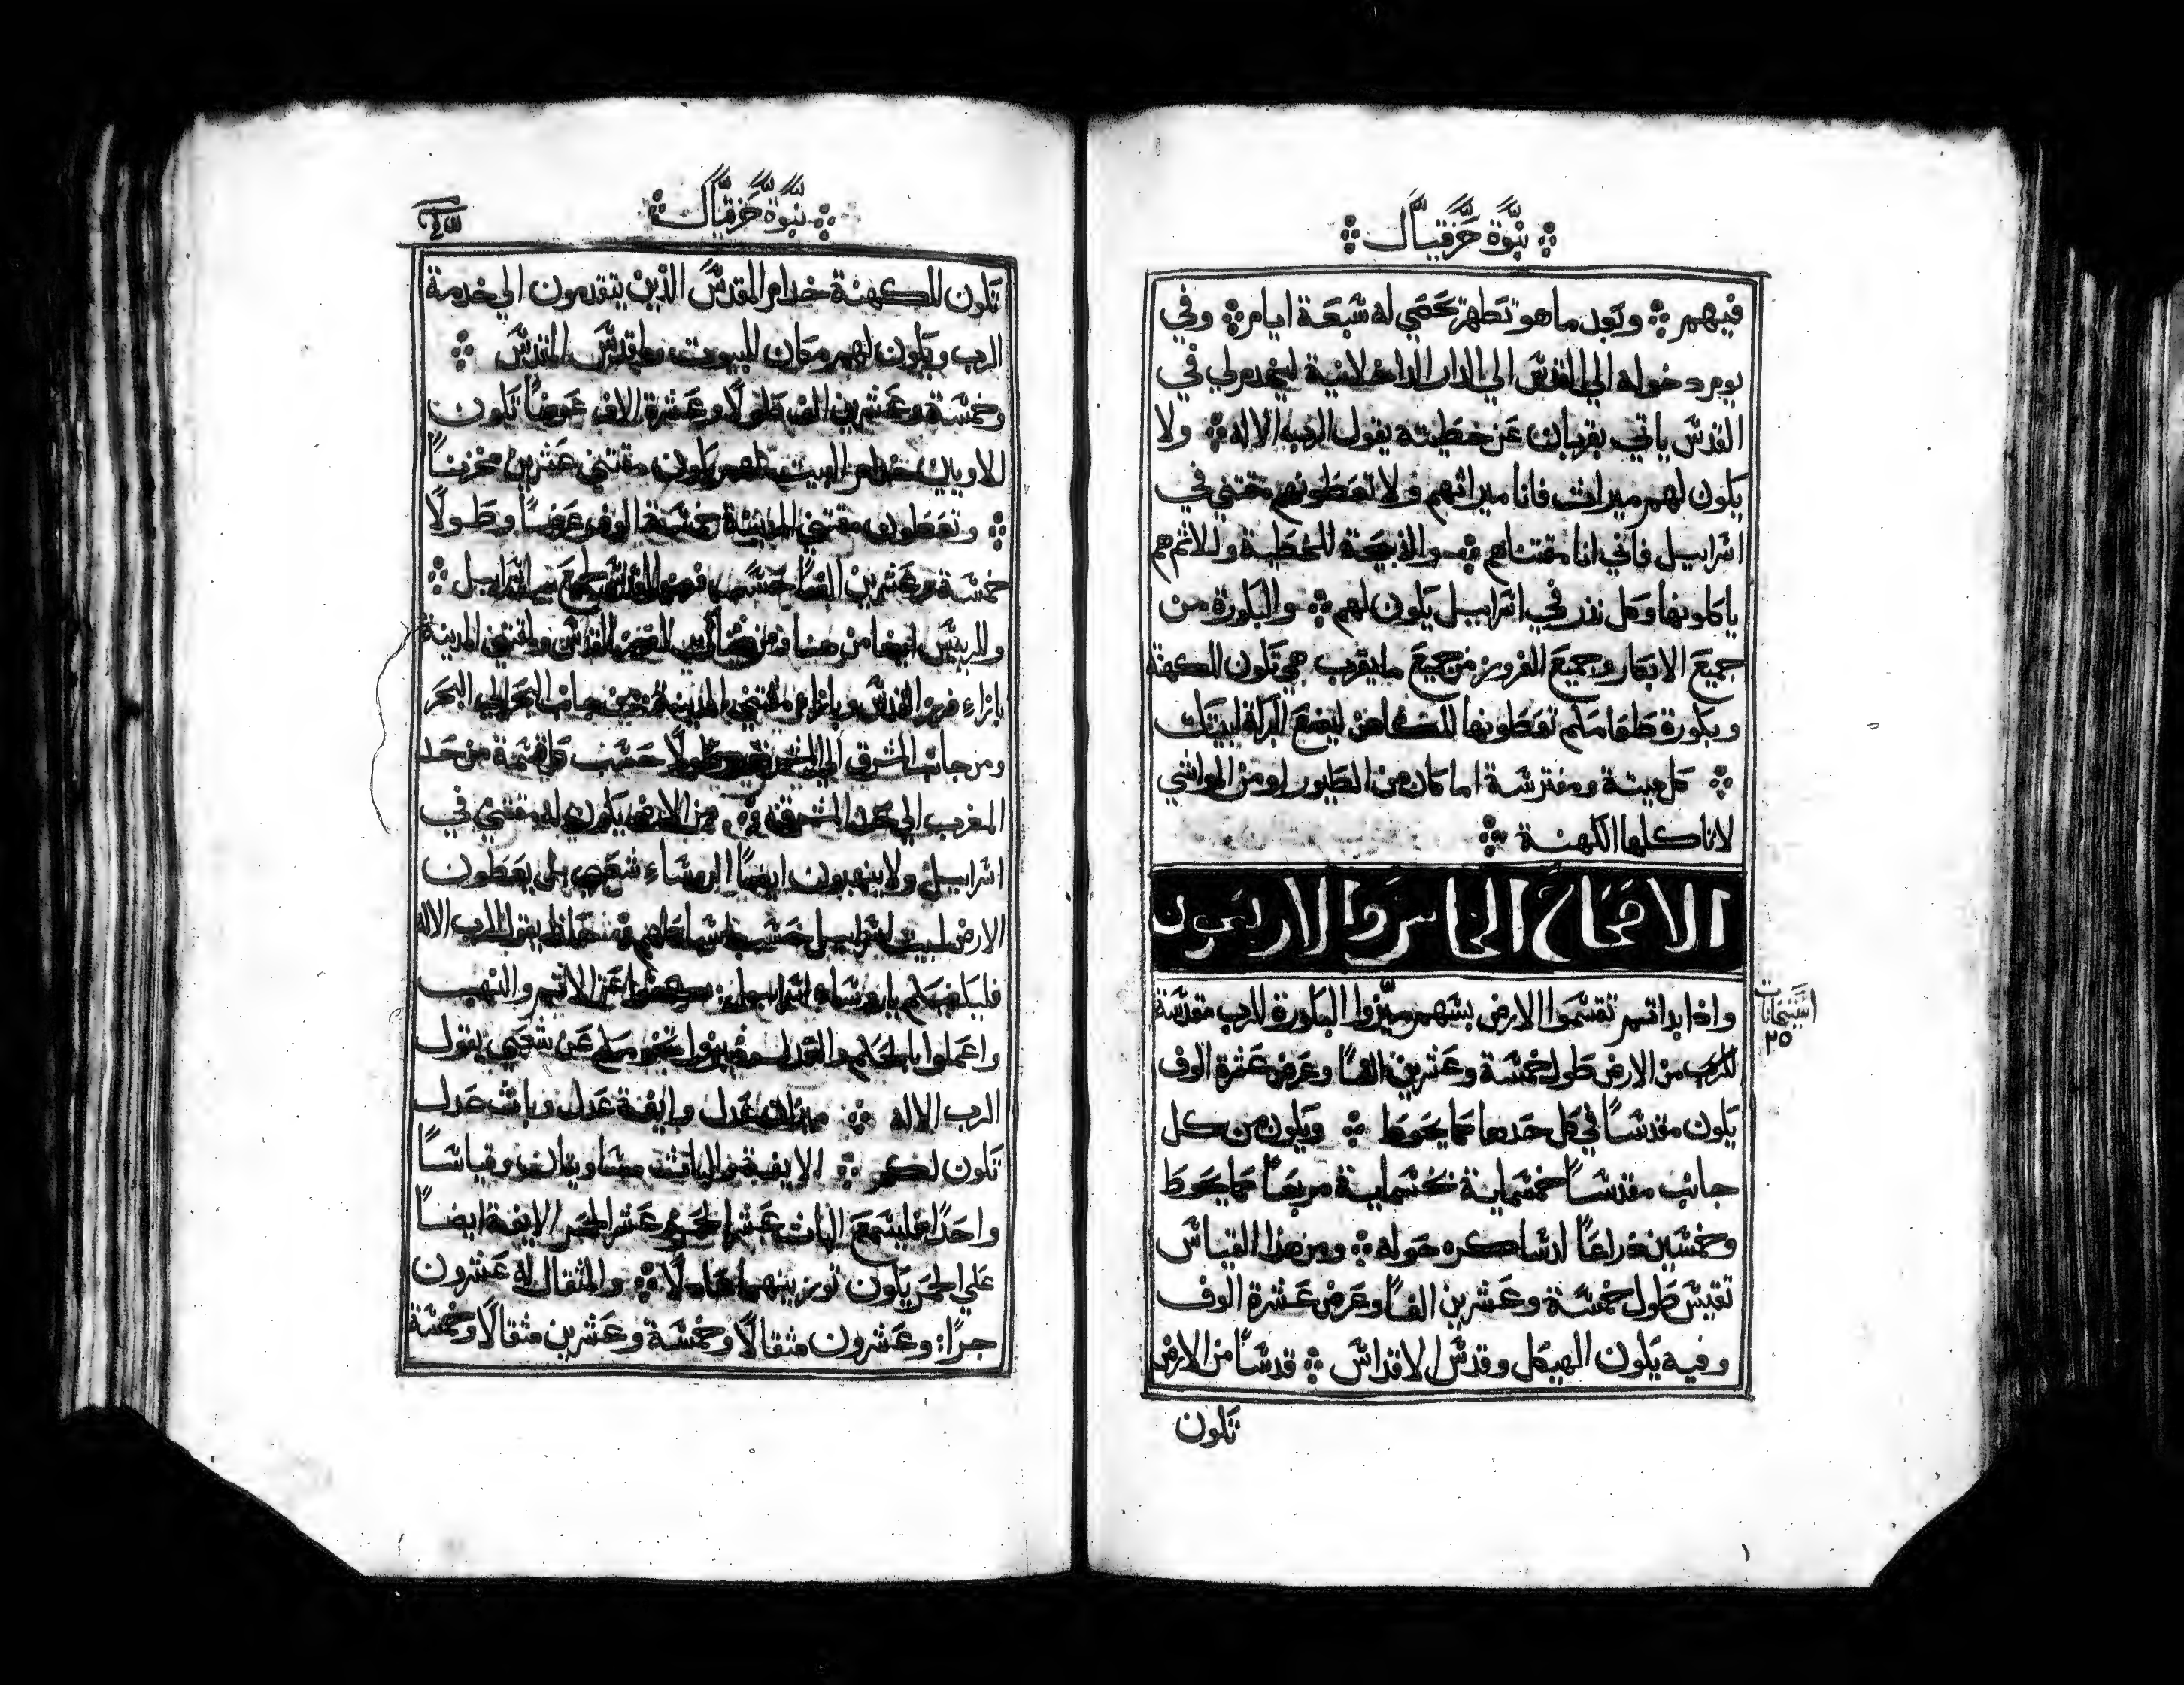 نبوة حزقيال
فيهم ۞ وبعد ما هو تطهر تحصي له سبعة ايام ۞ وفي
يوم دخوله الي القدس الي الدار الداخلانية ليخدم لي في
القدس ياتي بقربان عن خطيته يقول الرب الاله ۞ ولا
يكون لهم ميراث فانا ميراثهم ولا تعطونهم مقتني في
اسراييل فاني انا مقتناهم ۞ والذبيحة للخطية وللاثم هم
ياكلونها وكل نذر في اسراييل يكون لهم ۞ والبكورة من
جميع الابكار وجميع الفروز من جميع ما يقرب هي تكون للكهنة
وبكورة طعامكم تعطونها للكاهن ليضع البركة لبيتك
۞ كل ميتة ومفترسة اما كان من الطيور او من المواشي
لا تاكلها الكهنة ۞
الاصحاح الخامس والاربعون
واذا بداتم تقسموا الارض بسهم ميزوا البكورة للرب مقدسة
للرب من الارض طول خمسة وعشرين الفًا وعرض عشرة الوف
يكون مقدسًا في كل حدها كما يحوط ۞ ويكون من كل
جانب مقدسًا خمسماية بخسماية مربعًا كما يحوط
وخمسين ذراعًا لدساكره حوله ۞ ومن هذا القياس
تقيس طول خمسة وعشرين الفًا وعرض عشرة الوف
وفيه يكون الهيكل وقدس الاقداس ۞ قدسًا من الارض
تكون
٢٥
نبوة حزقيال
تكون للكهنة خدام المقدس الذين يتقدمون الي خدمة
الرب ويكون لهم مكان للبيوت ولمقدس المقدس ۞
وخمسة وعشرين الف طولًا وعشرة الاف عرضًا تكون
للاويين خدام البيت لهم يكون مقتني عشرين مخزنًا
۞ وتعطون مقتني المدينة خمسة الوف عرضًا وطولًا
خمسة وعشرين الفًا حسب فرز القدس لجميع بيت اسراييل ۞
وللرييس ايضا من هنا ومن هنا لفرز القدس ولمقتني المدينة
بازاء فرز القدس وبازاء مقتني المدينة من جانب البحر الي البحر
ومن جانب الشرق الي الشرق طولًا حسب كل قسمة من حد
المغرب الي حد المشرق ۞ من الارض يكون له مقتني في
اسراييل ولا ينهبون ايضًا الروساء شعبي بل يعطون
الارض لبيت اسراييل حسب اسباطهم يقول الرب الاله
فليكفيكم يا روساء اسراييل عن الاثم والنهب
واعملوا بالحكم والعدل عن شعبي يقول
الرب الاله ۞ ميزان عدل وايفة عدل وباث عدل
تكون لكم ۞ الايفة والباث متساويان وقياسًا
واحدًا ليسع الباث عشر الجمر وعشر الجمر الايفة ايضًا
علي الجمر يكون توزينهما عادلًا ۞ والمثقال له عشرون
جزًا: وعشرون مثقالًا وخمسة وعشرين مثقالًا وخمسة